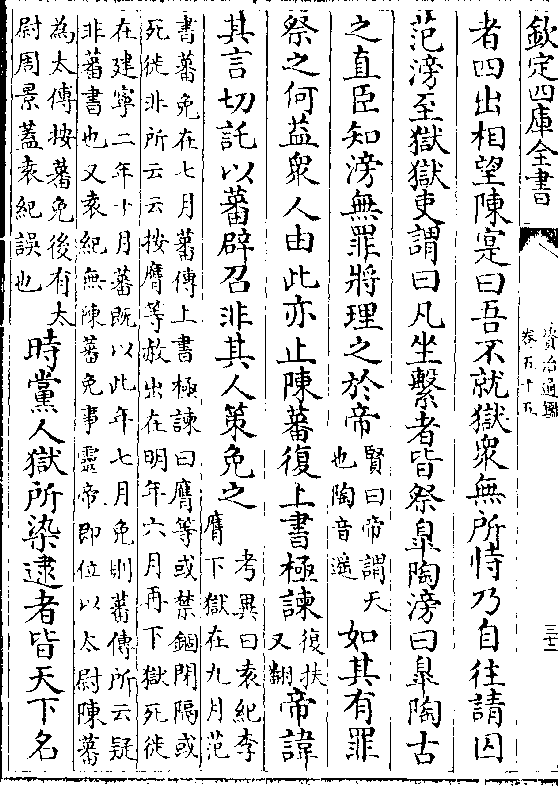 欽定四庫全書
資治通鑑
卷五十五
三十二
者四出相望陳寔曰吾不就獄衆無所恃乃自往請囚
范滂至獄獄吏謂曰凡坐繫者皆祭皐陶滂曰皐陶古
之直臣知滂無罪將理之於帝賢曰帝謂天也陶音遥如其有罪
祭之何益衆人由此亦止陳蕃復上書極諫復扶又翻帝諱
其言切託以蕃辟召非其人策免之考異曰袁紀李膺下獄在九月范
書蕃免在七月蕃傳上書極諫曰膺等或禁錮閉隔或
死徙非所云云按膺等赦出在明年六月再下獄死徙
在建寧二年十月蕃既以此年七月免則蕃傳所云疑
非蕃書也又袁紀無陳蕃免事靈帝即位以太尉陳蕃
為太傅按蕃免後有太
尉周景蓋袁紀誤也時黨人獄所染逮者皆天下名